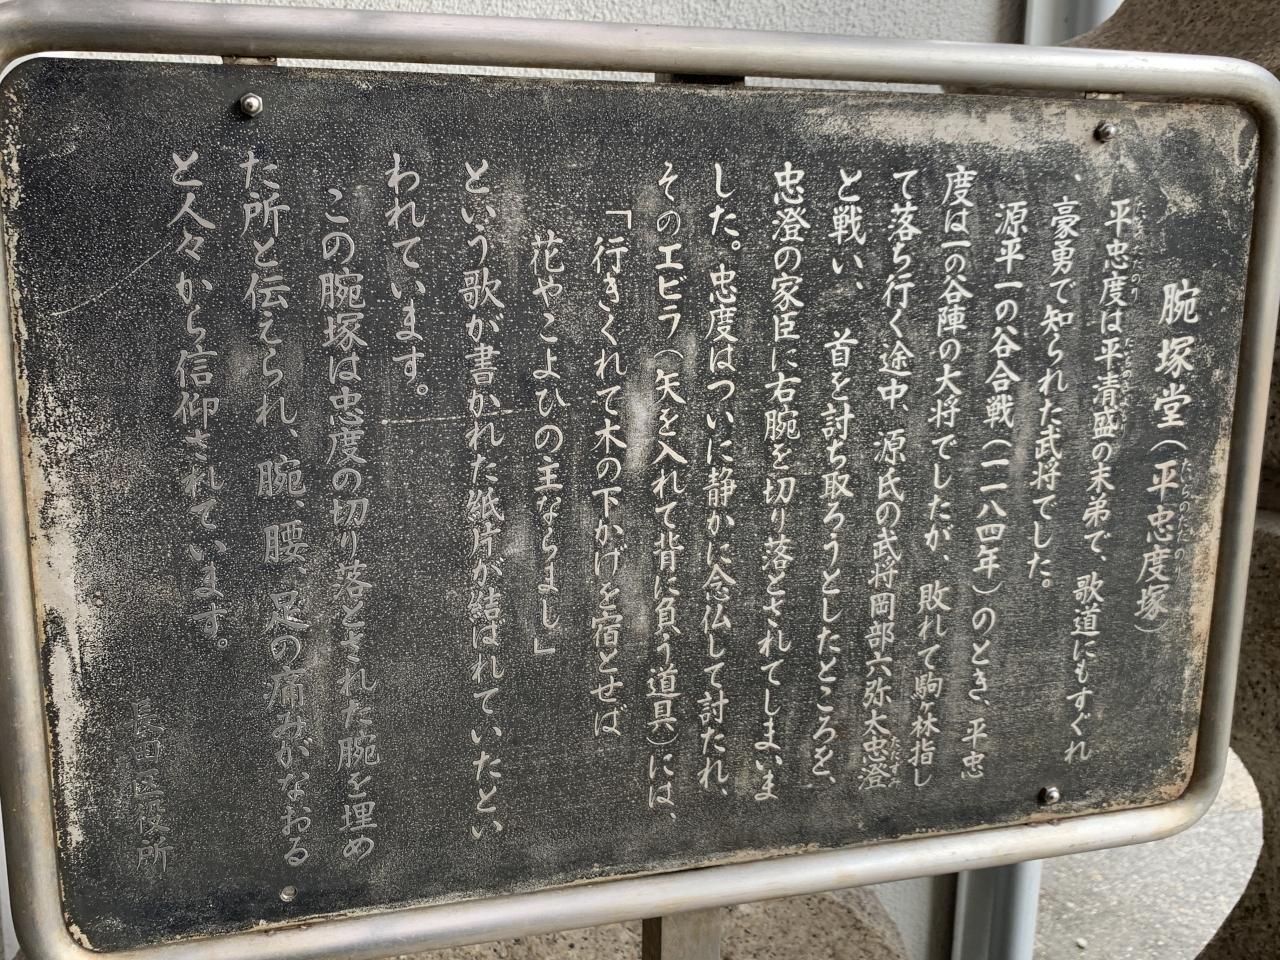 腕塚堂(平忠度塚)
たいらのただのり
平忠度は平清盛の末弟で、歌道にもすぐれ
、豪勇で知られた武将でした。
源平一の谷合戦(一一八四年)のとき、平忠
度は一の谷陣の大将でしたが、敗れて駒ヶ林指し
て落ち行く途中、源氏の武将岡部六弥太忠澄
ただすみ
と戦い、首を討ち取ろうとしたところを、
忠澄の家臣に右腕を切り落とされてしまいま
した。忠度はついに静かに念仏して討たれ、
そのエビラ(矢を入れて背に負う道具)には、
「行きくれて木の下かげを宿とせば
花やこよひの主ならまし」
という歌が書かれた紙片が結ばれていたとい
われています。
この腕塚は忠度の切り落とされた腕を埋め
た所と伝えられ、腕、腰、足の痛みがなおる
と人々から信仰されています。
長田区役所